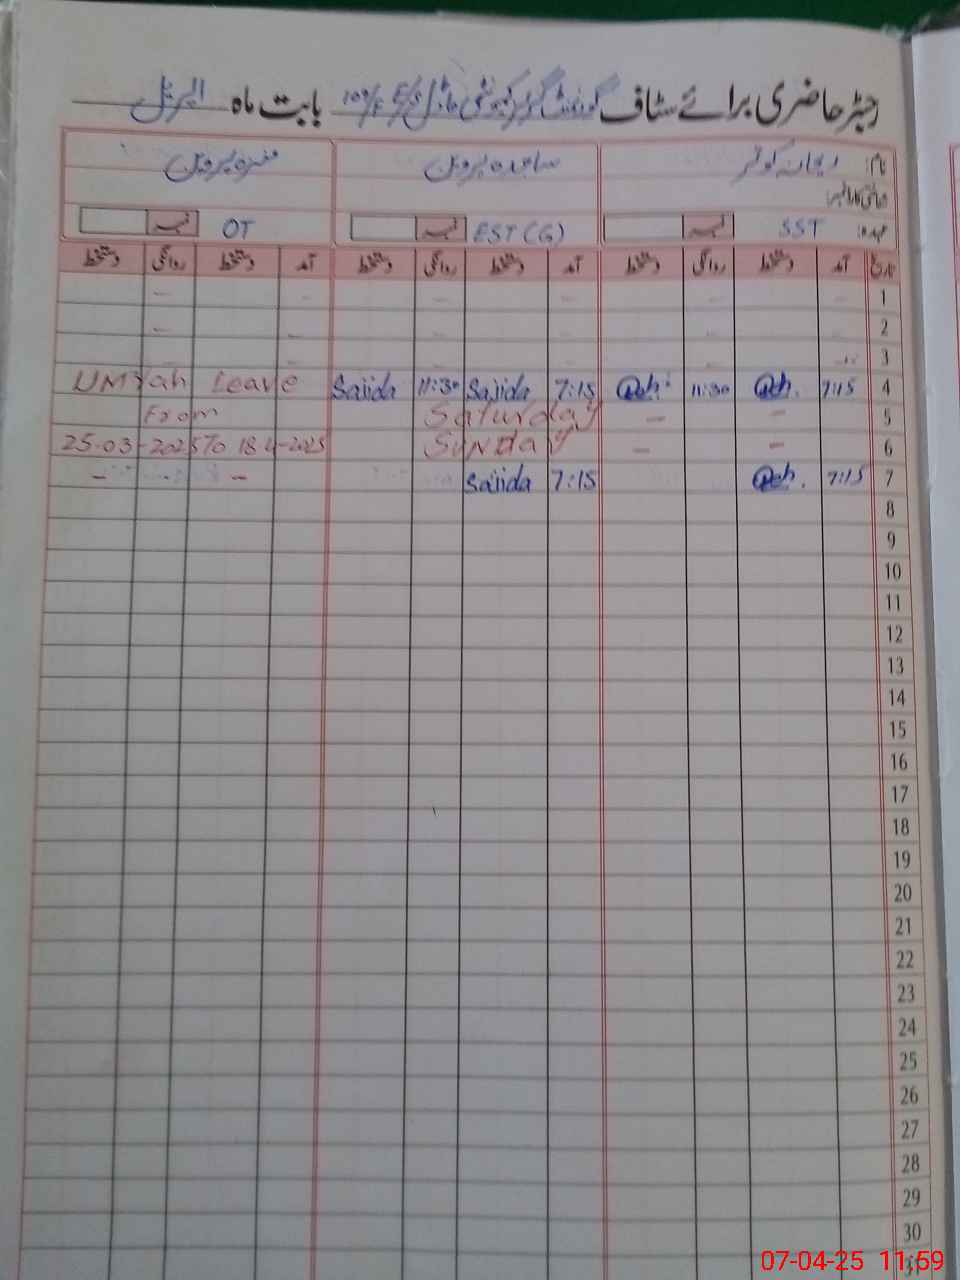 رجسٹر حاضری برائے سٹاف گورنمنٹ گرلز کمیونٹی ماڈل E/S 109/E بابت ماہ اپریل
نام: ریحانہ کوثر ساجدہ پروین منزہ پروین
عہدہ: SST نمبر EST (G) نمبر OT نمبر
تاریخ آمد دستخط روانگی دستخط آمد دستخط روانگی دستخط آمد دستخط روانگی دستخط
1 - - - - -
2
3
4 7:15 Reh. 11:30 Reh. 7:15 Sajida 11:30 Sajida UMrah Leave
5 - - Saturday From
6 - - Sunday 25-03-2025 To 18-4-2025
7 7:15 Reh. 7:15 Sajida - -
8
9
10
11
12
13
14
15
16
17
18
19
20
21
22
23
24
25
26
27
28
29
30
31
07-04-25 11:59